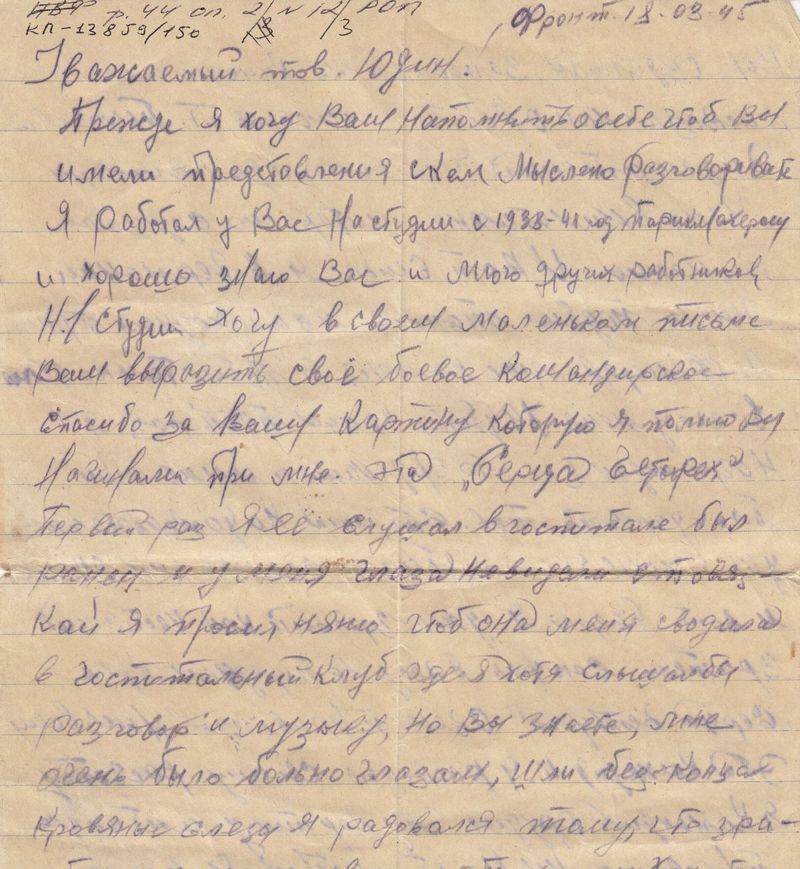 р. 44 оп. 2/ N 12/ РОП
КП-13859/150 3
Фронт. 18-03-45
Уважаемый тов. Юдин.
Прежде я хочу Вам напомнить о себе чтоб Вы
имели представления с кем мыслено разговориваете
Я работал у Вас на студии с 1938-41 год парикмахером
и хорошо знаю Вас и много других работников,
студии хочу в своем маленьком письме
Вам выразить своё боевое командирское
спасибо за Вашу картину которую я помню Вы
начинали при мне. Эта „Серца четырех"
Первый раз я её слушал в госпитале был
ранен и у меня глаза невидали с повяз-
кай я просил няню чтоб она меня сводила
в госпитальный клуб где я хотя слышалбы
разговор и музыку, но Вы знаете, мне
очень было больно глазам, шли без конца
кровяные слезы я радовался тому, что зри-